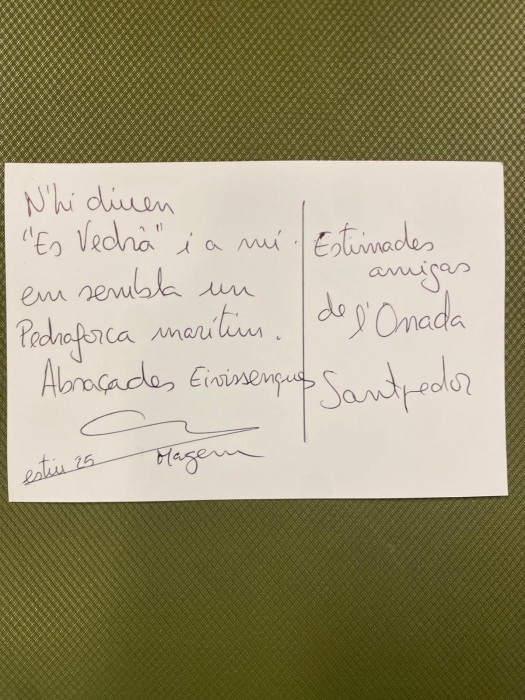 N'hi diuen
"Es Vedrà" i a mi
em sembla un
Pedraforca marítim.
Abraçades Eivissenques
estiu 25
Magem
Estimades
amigas
de l'Onada
Santpedor